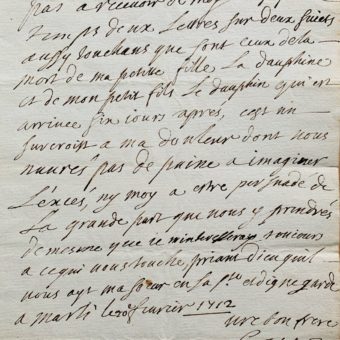 pas a recevoir de
temps deux Lettres sur deux sujets
aussy touchans que sont ceux de la
mort de ma petite fille La dauphine
et de mon petit fils Le dauphin qui est
arrivée six jours apres, cest un
surcroist a ma douleur dont vous
n'aurés pas de paine a imaginer
L'excés, ny moy a estre persuadé de
La grande part que vous y prendrés
de mesme que je minteresseray tousjours
a ce qui vous touche priant dieu quil
vous ayt ma soeur en sa ste et digne garde
a marli le 20e fevrier 1712
vre bon frere